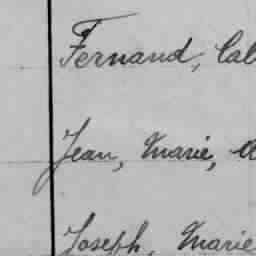 Fernand, Cal
Jean, Marie, A
Joseph, Marie